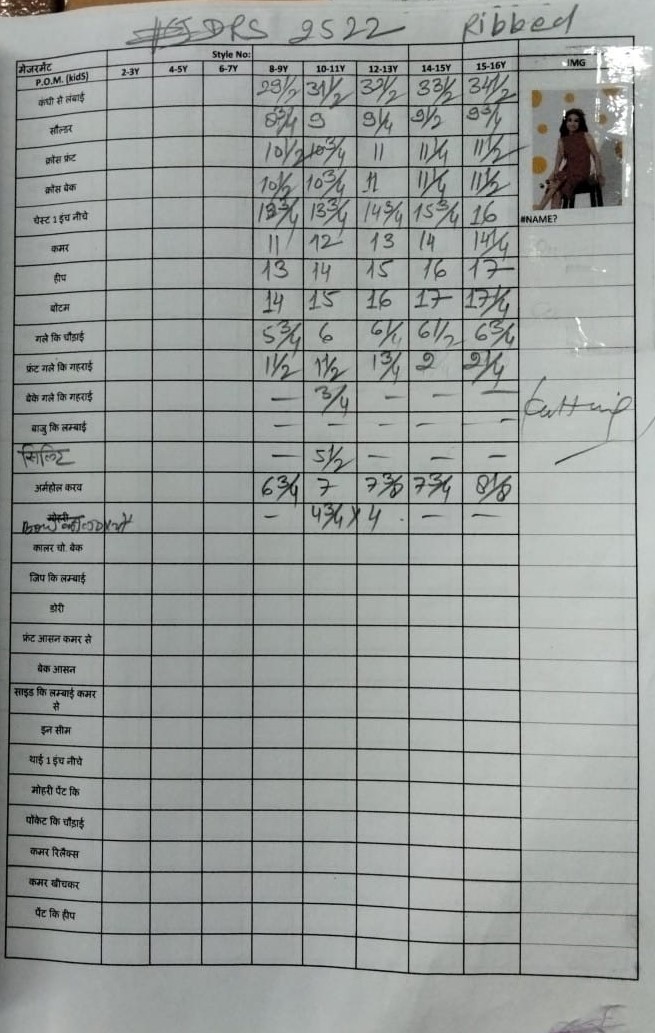 DRS 2522 Ribbed
Style No:
मेजरमेंट P.O.M. (kidS) 2-3Y 4-5Y 6-7Y 8-9Y 10-11Y 12-13Y 14-15Y 15-16Y IMG
कंधी से लंबाई 29 1/2 31 1/2 32 1/2 33 1/2 34 1/2
सौल्डर 8 3/4 9 9 1/4 9 1/2 9 3/4
क्रोस फ्रंट 10 1/2 10 3/4 11 11 1/4 11 1/2
क्रोस बेक 10 1/2 10 3/4 11 11 1/4 11 1/2
चेस्ट 1 इंच नीचे 13 3/4 14 3/4 15 3/4 16
#NAME?
कमर 11 12 13 14 14 1/4
हीप 13 14 15 16 17
बोटम 14 15 16 17 17 1/4
गले कि चौड़ाई 5 3/4 6 6 1/4 6 1/2 6 3/4
फ्रंट गले कि गहराई 1 1/2 1 1/2 1 3/4 2 2 1/4
बेके गले कि गहराई — 3/4 - - —
Cutting
बाजु कि लम्बाई - - - - -
सिलिट — 5 1/2 — — —
अर्महोल करव 6 3/4 7 7 3/8 7 3/4 8 1/8
मोहरी - 4 3/4 x 4 - — —
कालर चो. बेक
जिप कि लम्बाई
डोरी
फ्रंट आसन कमर से
बेक आसन
साइड कि लम्बाई कमर
से
इन सीम
थाई 1 इंच नीचे
मोहरी पेंट कि
पोकेट कि चौड़ाई
कमर रिलैक्स
कमर खीचकर
पेंट कि हीप